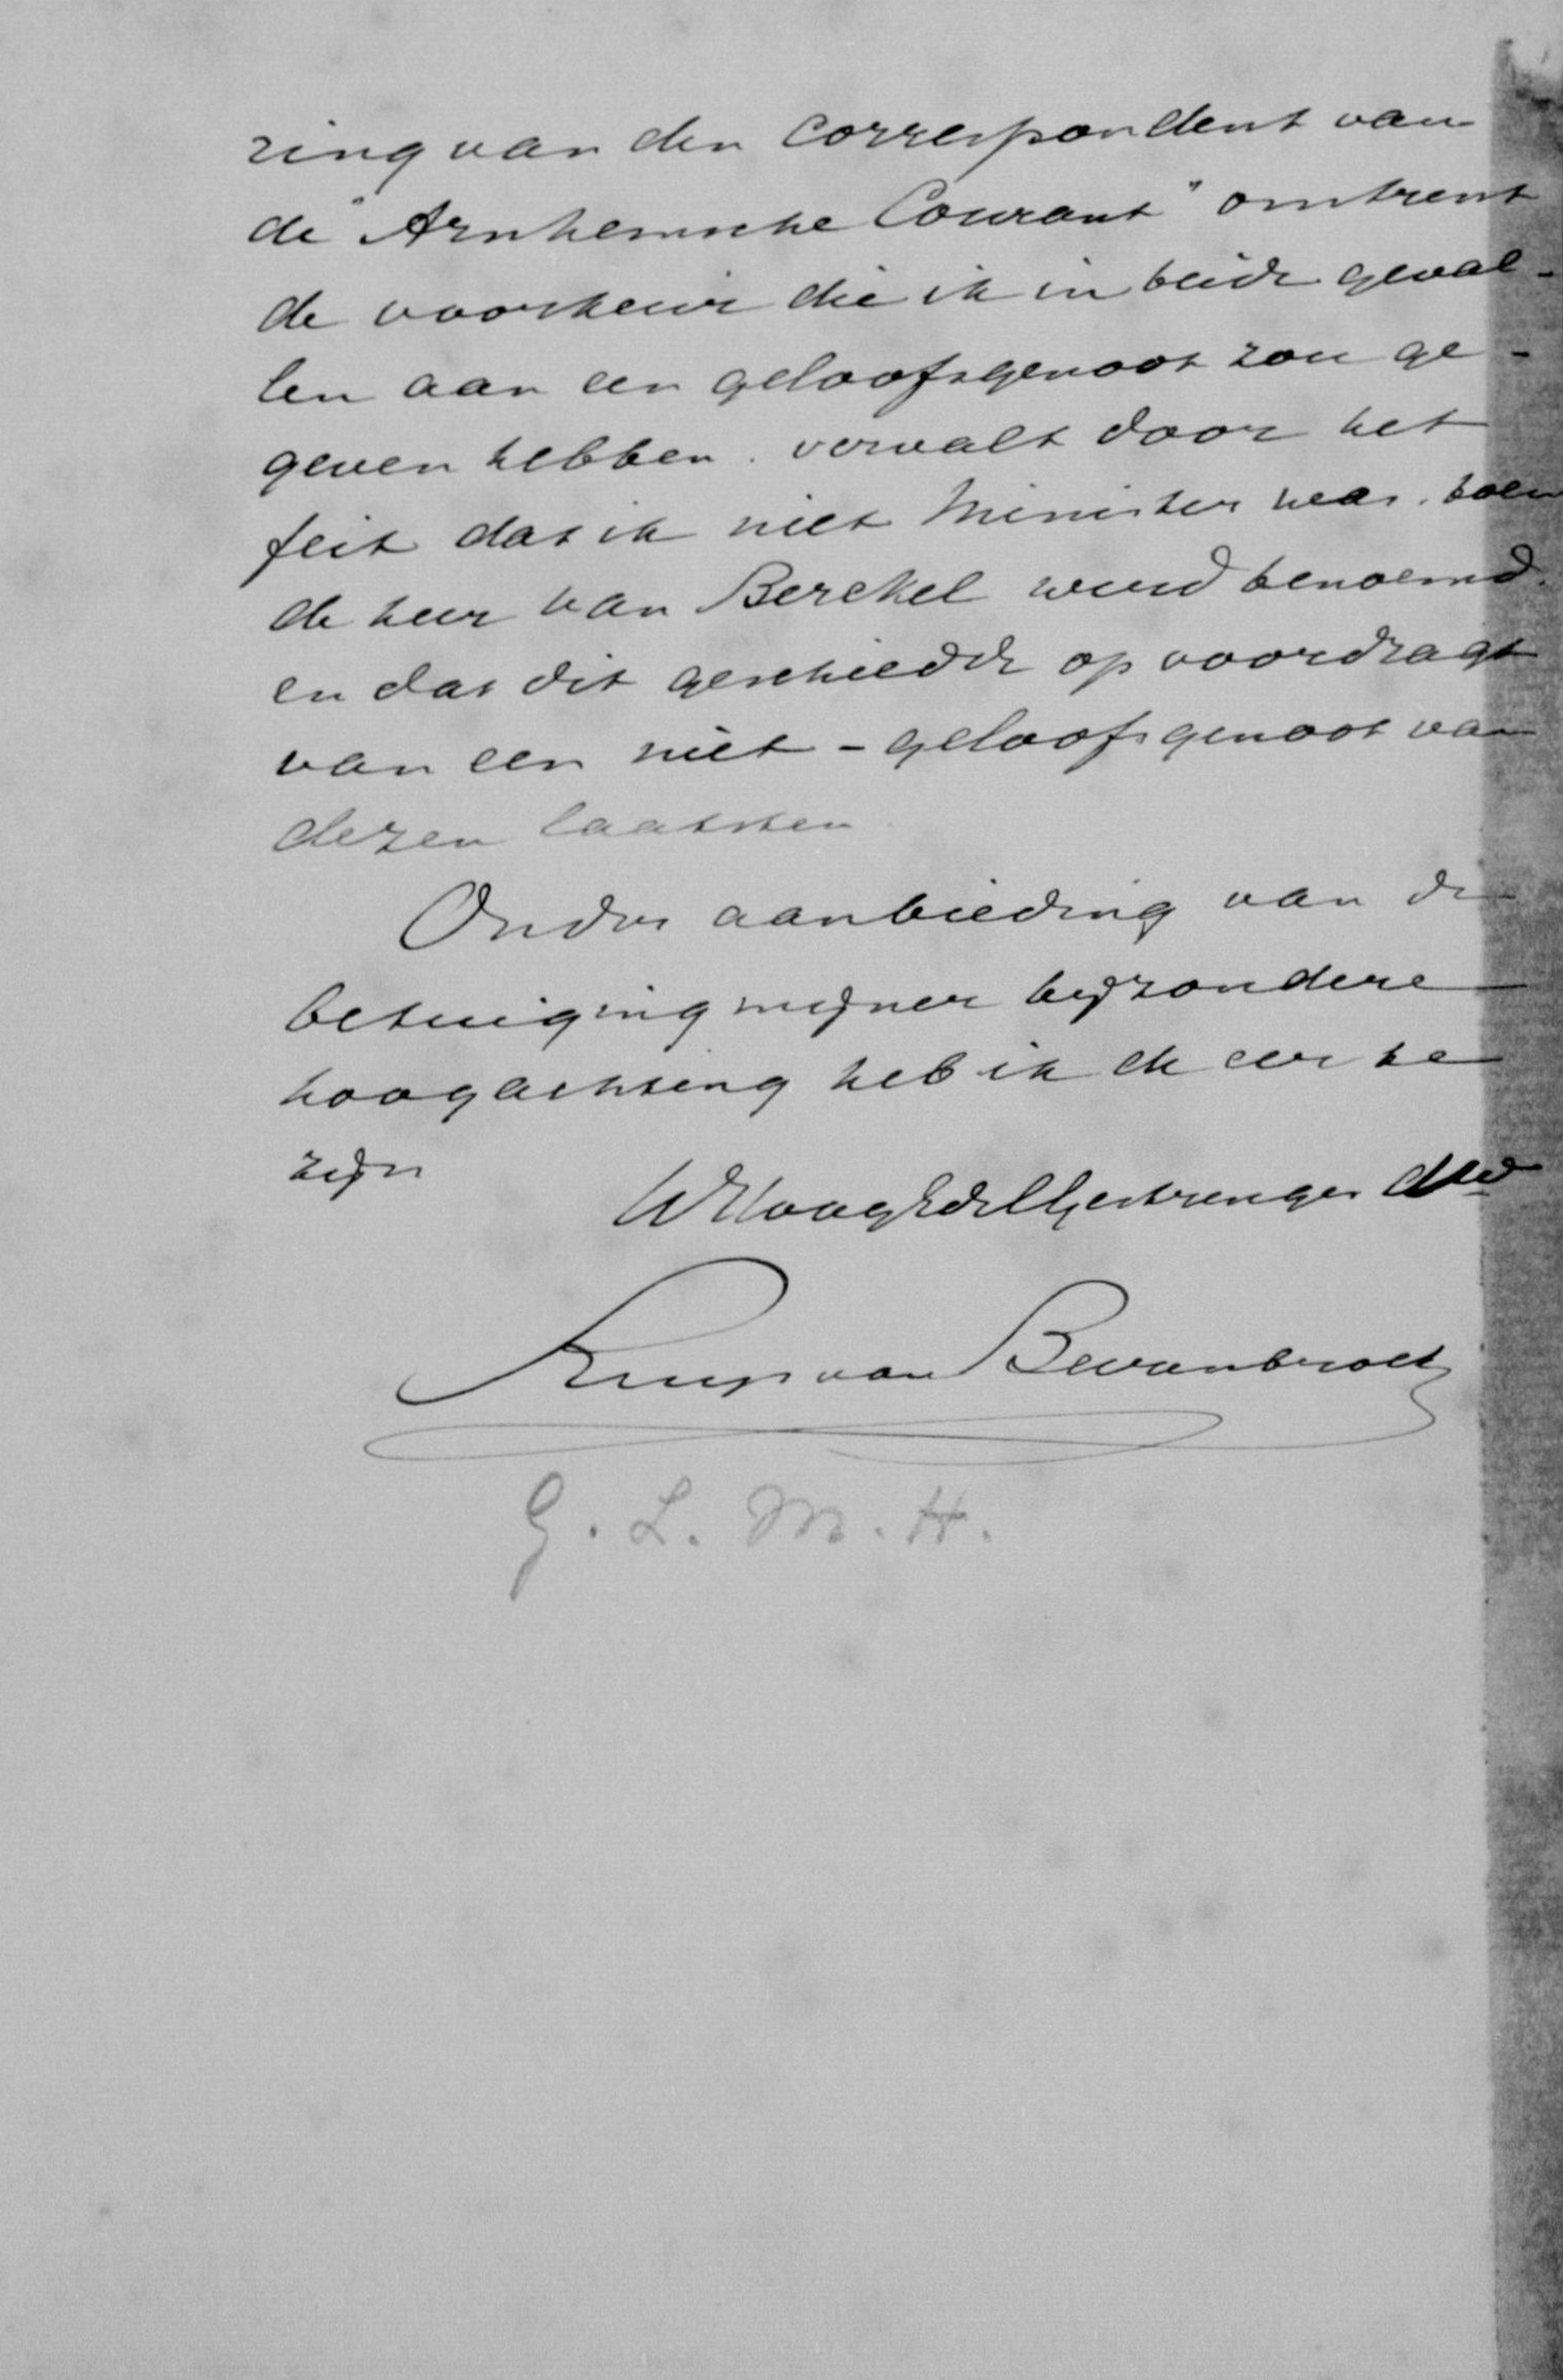 ring van den Correspondent van
de "Arnhemsche Courant" omtrent
de voorkeur die ik in beide geval-
len aan een geloofsgenoot zou ge-
geven hebben, vervalt door het
feit dat ik niet Minister was, toen
de heer van Berckel werd benoemd,
en dat dit geschiedde op voordragt
van een niet-geloofsgenoot van
dezen laatsten
Onder aanbieding van de
betuiging mijner bijzondere
hoogachting heb ik de eer te
zijn
UWHoogEdelGestrenges dw
Ruys van Beerenbroek
G. L. M. H.